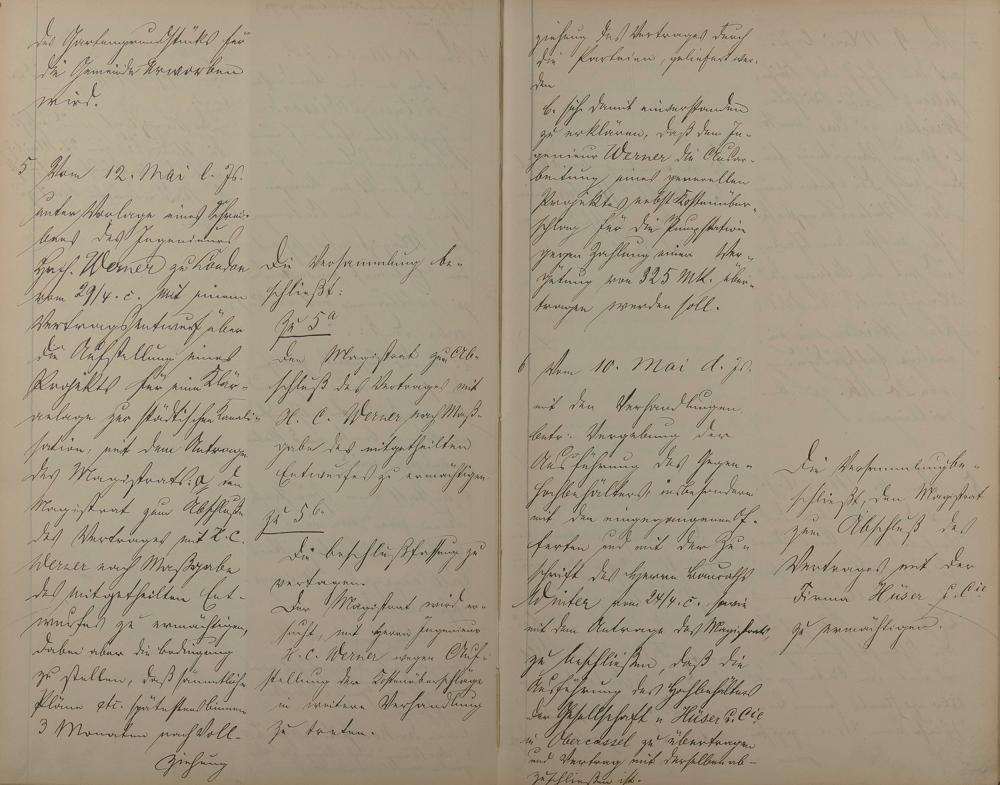 des Gartengrundstücks für
die Gemeinde erworben
wird.
5 Vom 12. Mai l. Js.
unter Vorlage eines Schrei-
bens des Ingenieurs
Werner zu London
vom 29/4. c. mit einem
Vertragsentwurf über
die Aufstellung eines
Projekts für eine Klär-
anlage zur städtischen Kanali-
sation, mit dem Antrage
des Magistrats: a, den
Magistrat zum Abschluße
des Vertrages mit H. C.
Werner nach Maßgabe
des mitgetheilten Ent-
wurfes zu ermächtigen,
dabei aber die Bedingung
zu stellen, daß sämmtliche
Pläne etc. spätestens binnen
3 Monaten nach Voll-
ziehung
Die Versammlung be-
schließt:
Zu 5a
Den Magistrat zum Ab-
schluß des Vertrages mit
H. C. Werner nach Maß-
gabe des mitgetheilten
Entwurfes zu ermächtigen.
Zu 5b.
Die Beschlußfassung zu
vertagen.
Der Magistrat wird er-
sucht, mit Herrn Ingenieur
H. C. Werner wegen Auf-
stellung der Kostenüberschläge
in weitere Verhandlung
zu treten.
ziehung des Vertrages durch
die Parteien, geliefert wer-
den
b. sich damit einverstanden
zu erklären, daß dem In-
genieur Werner die Ausar-
beitung eines generellen
Projektes nebst Kostenüber-
schlag für die Pumpstation
gegen Zahlung einer Ver-
gütung von 325 Mk. über-
tragen werden soll.
6 Vom 10. Mai d. Js.
mit den Verhandlungen
betr: Vergebung der
Ausführung des Gegen-
hochbehälters, insbesondere
mit den eingegangenen Of-
ferten und mit der Zu-
schrift des Herrn Bauraths
Winter vom 24/4. c. sowie
mit dem Antrage des Magistrats,
zu beschließen, daß die
Ausführung des Hochbehälters
der Gesellschaft Hüser u. Cie
in Obercassel zu übertragen
und Vertrag mit derselben ab-
zuschließen ist.
Die Versammlung be-
schließt, den Magistrat
zum Abschluß des
Vertrages mit der
Firma Hüser u. Cie
zu ermächtigen.